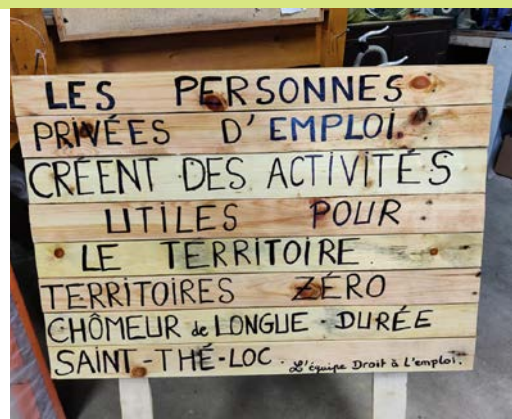 LES PERSONNES
PRIVÉES D'EMPLOI.
CRÉENT DES ACTIVITÉS
UTILES POUR
LE TERRITOIRE.
TERRITOIRES ZÉRO
CHÔMEUR de LONGUE DURÉE
SAINT-THÉ-LOC. L'équipe Droit à l'emploi.